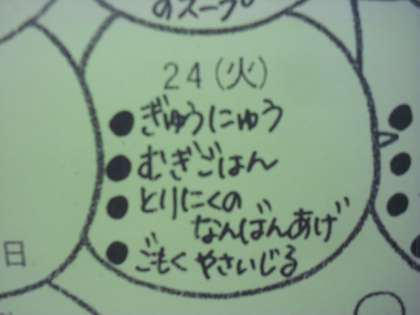 のスープ
24(火)
●ぎゅうにゅう
●むぎごはん
●とりにくの
なんばんあげ
●ごもくやさいじる
日